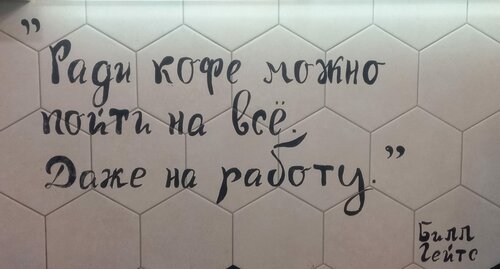 "Ради кофе можно
пойти на всё.
Даже на работу."
Билл
Гейтс